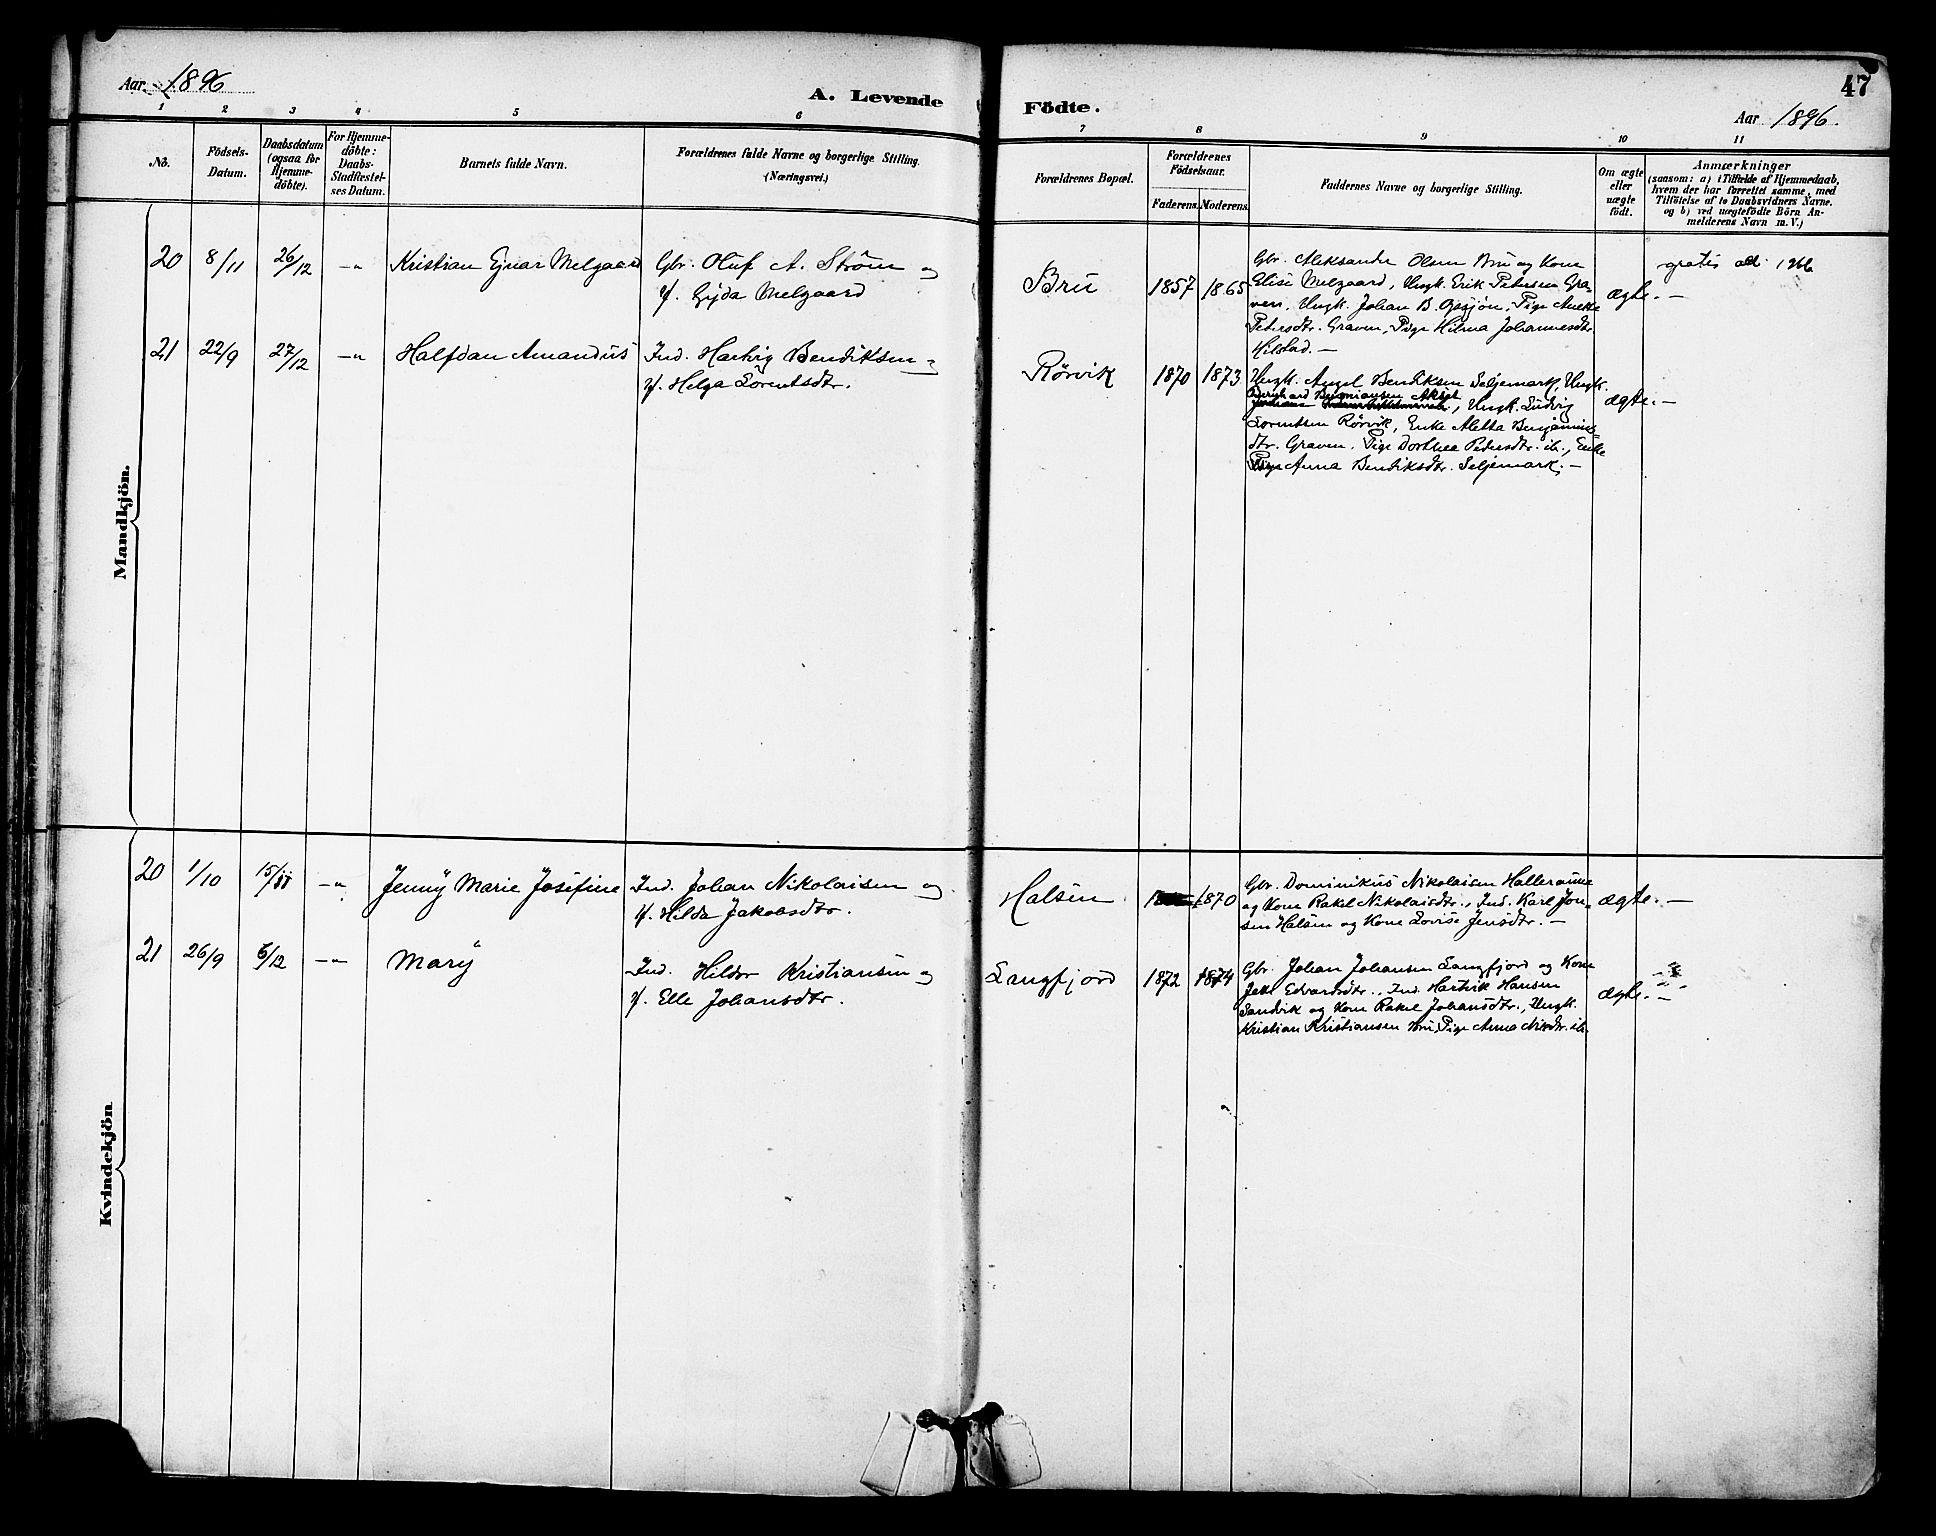 Aar 1896
A. Levende
Födte.
47
Aar 1896.
1 2 3 4 5 6 7 8 9 10 11
No.
Födsels-
Datum.
Daabsdatum
(ogsaa for
Hjemme-
döbte).
For Hjemme-
döbte:
Daabs-
Stadfæstel-
ses Datum.
Barnets fulde Navn.
Forældrenes fulde Navne og borgerlige Stilling.
(Næringsvei.)
Forældrenes Bopæl.
Forældrenes
Födselsaar.
Faderens. Moderens.
Faddernes Navne og borgerlige Stilling.
Om ægte
eller
uægte
födt.
Anmærkninger
(saasom: a) i Tilfælde af Hjemmedaab,
hvem der har forrettet samme, med
Tilföielse af to Daabsvidners Navne.
og b) ved uægtefödte Börn An-
melderens Navn m. V.)
Mandkjön.
20 8/11 26/12 -"- Kristian Ejnar Melgaard
Gbr. Oluf A. Strøm og
H. Gyda Melgaard
Bru 1857 1865
Gbr. Aleksander Olsen Bru og Kone
Elise Melgaard, Ungk. Erik Petersen Gra-
ven, Ungk. Johan B. Opsjön, Pige Anette
Petersdtr. Graven, Pige Hilma Johannesdtr.
Hilstad. —
ægte. —
gratis att. 1966
21 22/9 27/12 -"- Halfdan Amandus
Ind. Hartvig Bendiksen og
H. Helga Lorentsdtr.
Rørvik 1870 1873
Ungk. Angel Bendiksen Seljemark, Ungk.
Berghard Aksel
, Ungk. Ludvig
Lorentsen Rørvik, Enke Aletta Benjamins-
dtr. Graven. Pige Dorthea Petersdtr. ib., Enke
Anna Bendiksdtr. Seljemark. —
ægte. —
Kvindekjön
20 1/10 15/11 -"- Jenny Marie Josefine
Ind. Johan Nikolaisen og
H. Hilda Jakobsdtr.
Halsen 1870
Gbr. Dominikus Nikolaisen Halleraune
og Kone Rakel Nikolaisdtr., Ind. Karl Jon-
sen Halsen og Kone Lovise Jensdtr. —
ægte. —
21 26/9 6/12 -"- Mary
Ind. Hildor Kristiansen og
H. Elle Johansdtr.
Langfjord 1872 1874
Gbr. Johan Johansen Langfjord og Kone
Edvardsdtr., Ind. Hartvik Hansen
Sandvik og Kone Rakel Johansdtr., Ungk.
Kristian Kristiansen Bru, Pige Anna Nilsdtr. ib.
ægte. —